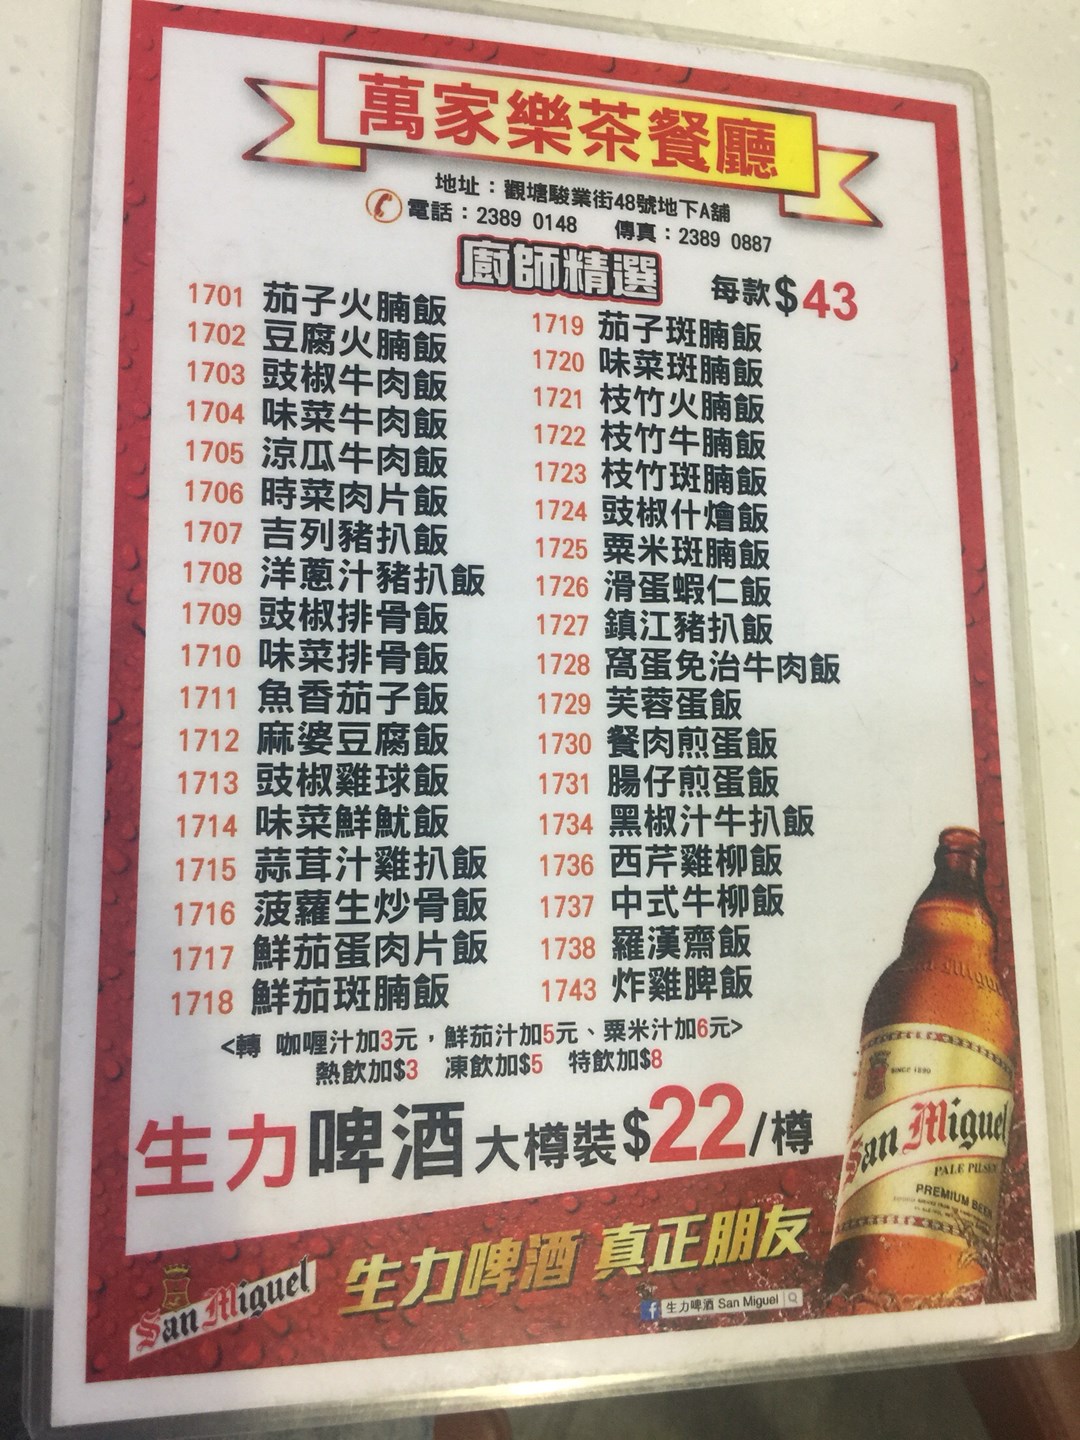 萬家樂茶餐廳
地址：觀塘駿業街48號地下A舖
電話：2389 0148 傳真：2389 0887
廚師精選 每款$43
1701 茄子火腩飯
1702 豆腐火腩飯
1703 豉椒牛肉飯
1704 味菜牛肉飯
1705 涼瓜牛肉飯
1706 時菜肉片飯
1707 吉列豬扒飯
1708 洋蔥汁豬扒飯
1709 豉椒排骨飯
1710 味菜排骨飯
1711 魚香茄子飯
1712 麻婆豆腐飯
1713 豉椒雞球飯
1714 味菜鮮魷飯
1715 蒜茸汁雞扒飯
1716 菠蘿生炒骨飯
1717 鮮茄蛋肉片飯
1718 鮮茄斑腩飯
1719 茄子斑腩飯
1720 味菜斑腩飯
1721 枝竹火腩飯
1722 枝竹牛腩飯
1723 枝竹斑腩飯
1724 豉椒什燴飯
1725 粟米斑腩飯
1726 滑蛋蝦仁飯
1727 鎮江豬扒飯
1728 窩蛋免治牛肉飯
1729 芙蓉蛋飯
1730 餐肉煎蛋飯
1731 腸仔煎蛋飯
1734 黑椒汁牛扒飯
1736 西芹雞柳飯
1737 中式牛柳飯
1738 羅漢齋飯
1743 炸雞脾飯
<轉 咖喱汁加3元，鮮茄汁加5元、粟米汁加6元>
熱飲加$3 凍飲加$5 特飲加$8
生力啤酒 大樽裝$22/樽
San Miguel
生力啤酒 真正朋友
f 生力啤酒 San Miguel
SINCE 1890
San Miguel
PALE PILSEN
PREMIUM BEER